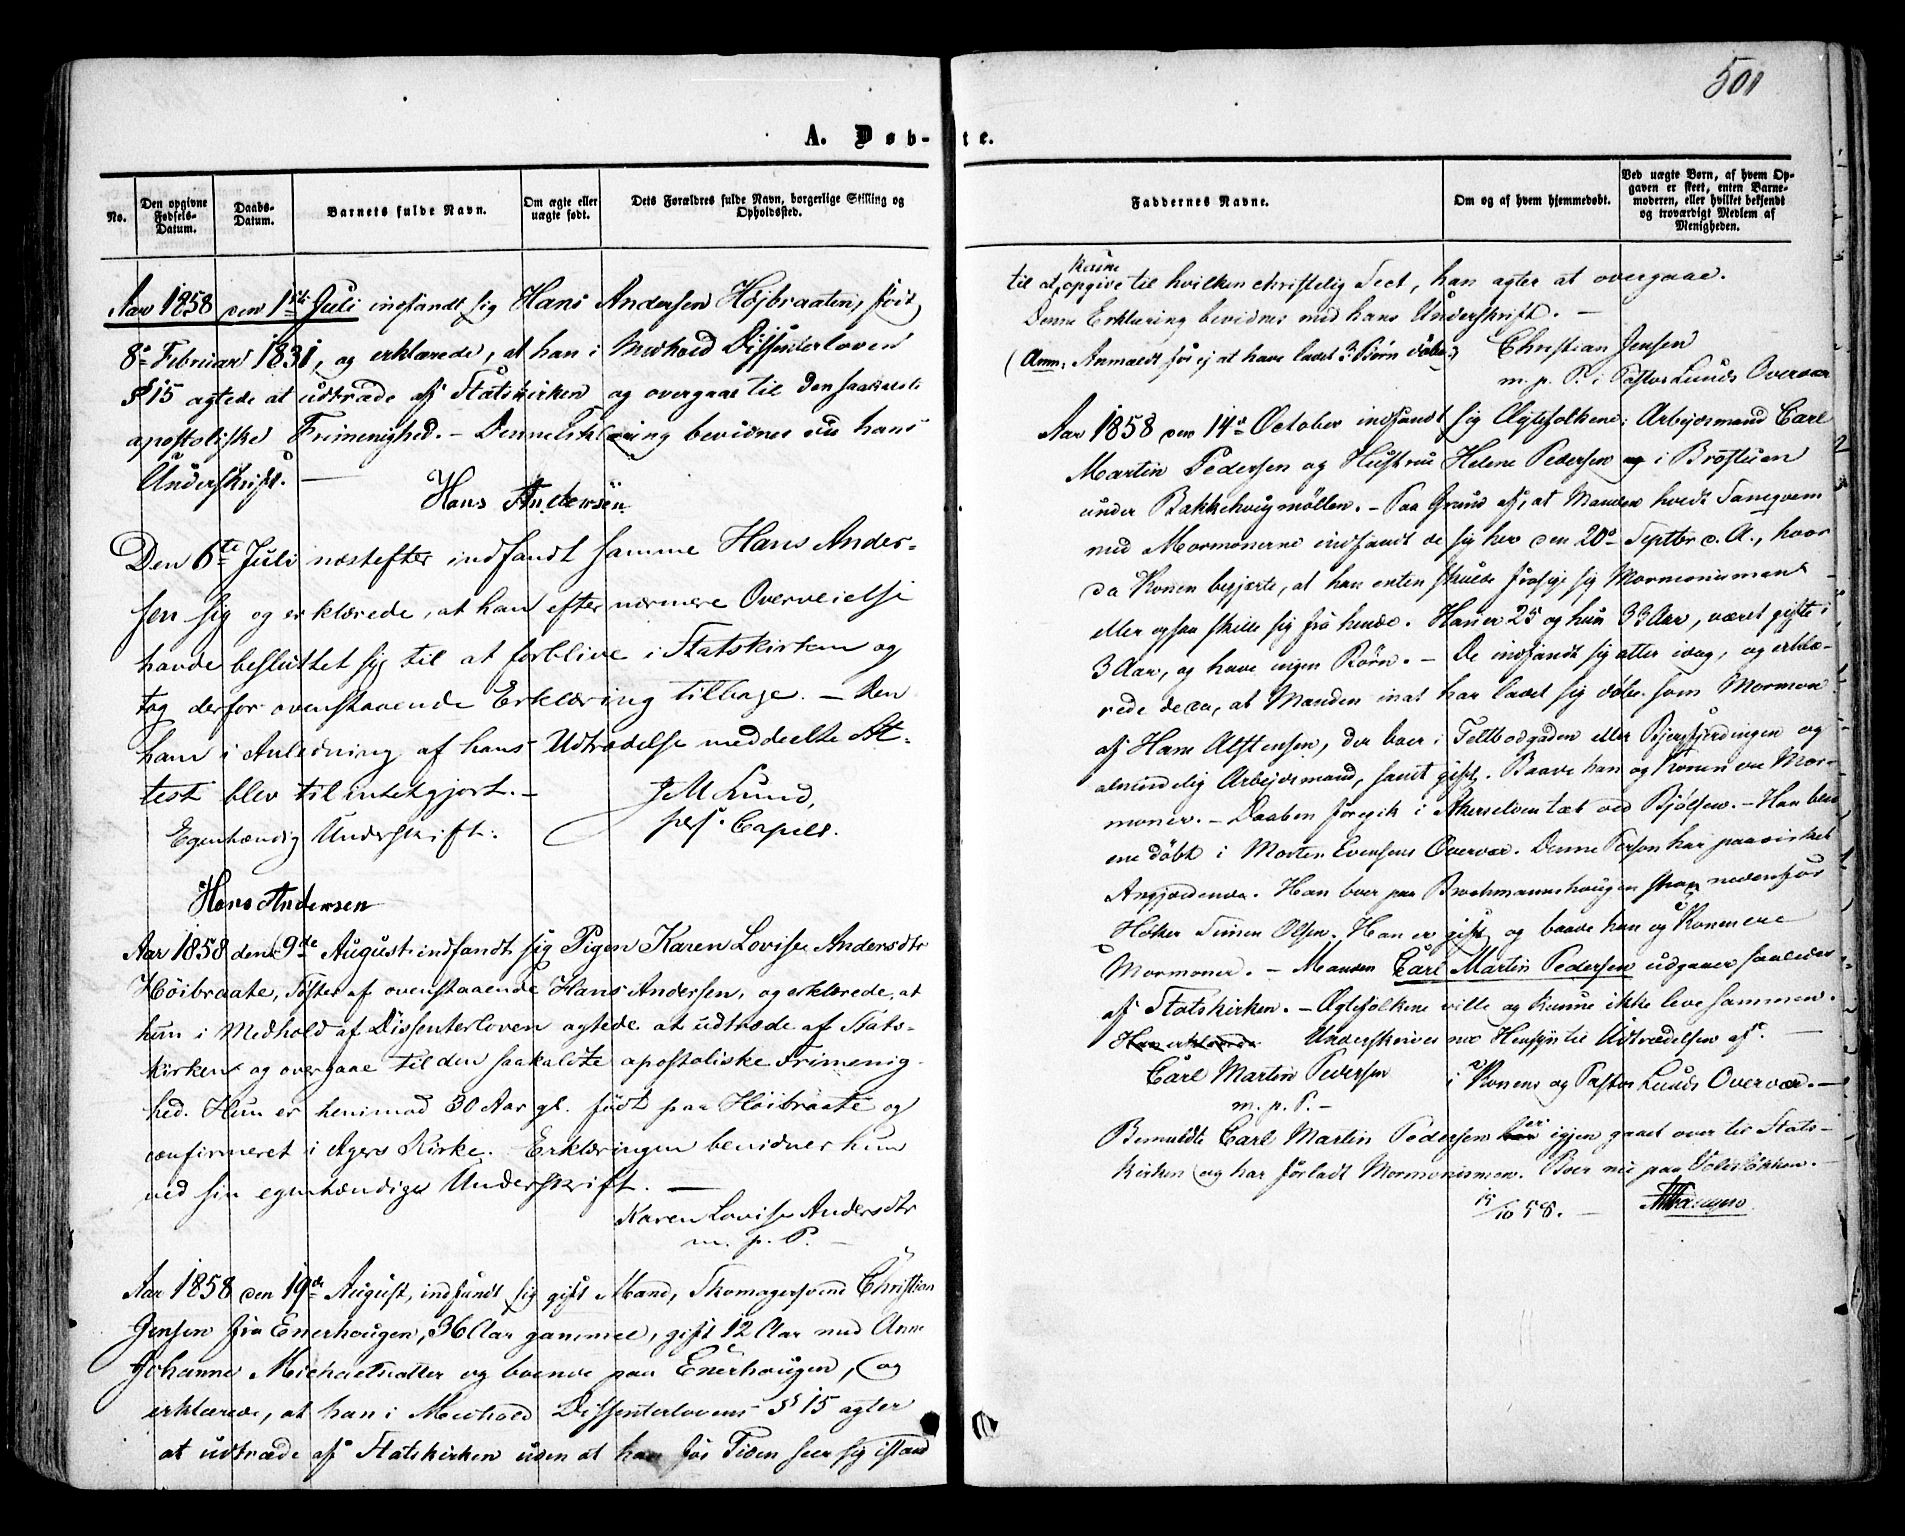 501
A. Døb-te.
No.
Den opgivne Fødsels-Datum.
Daabs-Datum.
Barnets fulde Navn.
Om ægte eller uægte født.
Dets Forældres fulde Navn, borgerlige Stilling og Opholdssted.
Faddernes Navne.
Om og af hvem hjemmedøbt.
Ved uægte Børn, af hvem Opgaven er skeet, enten Barnemoderen, eller hvilket bekjendt og troværdigt Medlem af Menigheden.
Aar 1858 den 1ste Juli indfandt sig Hans Andersen Højbraaten, født
8de Februar 1831, og erklærede, at han i Medhold Dissenterloven
§ 15 agtede at udtræde af Statskirken og overgaae til den saakaldte
apostoliske Frimenighed. – Denne Erklæring bevidnes ved hans
Underskrift. —
Hans Andersen
Den 6te Juli næstefter indfandt samme Hans Ander-
sen sig og erklærede, at han efter nærmere Overveielse
havde besluttet sig til at forblive i Statskirken og
tog derfor ovenstaaende Erklæring tilbage. – Den
ham i Anledning af hans Udtrædelse meddeelte At-
test blev tilintetgjort. –
J M Lund,
pers. Capell.
Egenhændig Underskrift:
Hans Andersen
Aar 1858 den 9de August indfandt sig Pigen Karen Lovise Andersdtr
Høibraate, Søster af ovenstaaende Hans Andersen, og erklærede, at
hun i Medhold af Dissenterloven agtede at udtræde af Stats-
kirken og overgaae til den saakaldte apostoliske Frimenig-
hed. Hun er henimod 30 Aar gl. født paa Høibraate og
confirmeret i Agers Kirke. Erklæringen bevidner hun
ved sin egenhændige Underskrift. —
Karen Lovise Andersdtr
m. p. P. –
Aar 1858 den 19de August, indfandt sig gift Mand, Skomagersvend Christian
Jensen fra Enerhougen, 36 Aar gammel, gift 12 Aar med Anne
Johanne Michaelsdatter og boende paa Enerhougen, og
erklærede, at han i Medhold Dissenterlovens § 15 agter
at udtræde af Statskirken uden at han for Tiden seer sig istand
til at kunne opgive til hvilken christelig Sect, han agter at overgaae.
Denne Erklæring bevidnes med hans Underskrift. –
(Anm: Anmeldt for ej at have ladet 3 Børn døbe.)
Christian Jensen
m. p. P. i Pastor Lunds Overvær
Aar 1858 den 14de October indfandt sig Ægtefolkene: Arbejdsmand Carl
Martin Pedersen og Hustru Helene Pedersen i Brostuen
under Bakkehougmøllen. – Paa Grund af, at Manden havde Samqvem
med Mormonerne indfandt de sig her den 20de Septbr d. A., hvor
da Konen begjerte, at han enten skulde frasige sig Mormonismen
eller ogsaa skille sig fra hende. Han er 25 og hun 33 Aar, været gifte i
3 Aar, og have ingen Børn. – De indfandt sig atter idag, og erklæ-
rede de da, at Manden inat har ladet sig døbe som Mormon
af Hans Alstensen, der boer i Tettbodgaden eller Bjergfjerdingen og
almindelig Arbejdsmand, samt gift. Baade han og Konen ere Mor-
moner. – Daaben foregik i Akerselven tæt ved Bjølsen. – Han blev
ene døbt i Morten Evensens Overvær. Denne Person har paavirket
Angjældende. Han boer paa Brochmannshougen strax nedenfor
Høker Simen Olsen. Han er gift og baade han og Konen ere
Mormoner. – Manden Carl Martin Pedersen udgaaer saaledes
af Statskirken. – Ægtefolkene ville og kunne ikke leve sammen.
Underskriver med Hensyn til Udtrædelsen af
Carl Martin Pedersen
m. p. P. –
i Konens og Pastor Lunds Overvær. –
Bemeldte Carl Martin Pedersen er igjen gaaet over til Stats-
kirken og har forladt Mormonismen. Boer nu paa
15/10 58. –